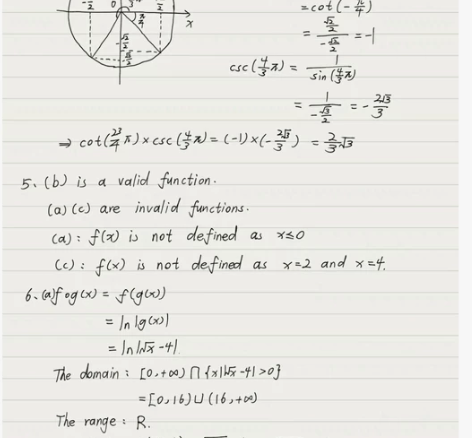 = cot(-π/4)
= (√2/2)/(-√2/2) = -1
csc(4/3 π) = 1/sin(4/3 π)
= 1/(-√3/2) = -2√3/3
⇒ cot(23/4 π) × csc(4/3 π) = (-1) × (-2√3/3) = 2/3 √3
5、(b) is a valid function.
(a) (c) are invalid functions.
(a): f(x) is not defined as x≤0
(c): f(x) is not defined as x=2 and x=4.
6、(a) fog(x) = f(g(x))
= ln|g(x)|
= ln|√x -4|
The domain: [0,+∞) ∩ {x| |√x -4| >0}
= [0,16) ∪ (16,+∞)
The range: R.